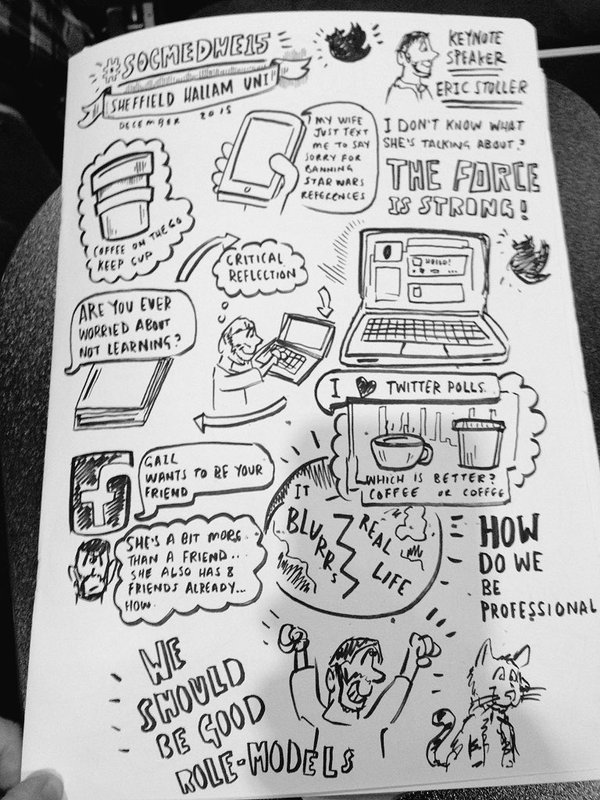 #SOCMEDHE15
SHEFFIELD HALLAM UNI
DECEMBER 2015
KEYNOTE
SPEAKER
ERIC STOLLER
MY WIFE
JUST TEXT
ME TO SAY
SORRY FOR
BANNING
STAR WARS
REFERENCES
I DON'T KNOW WHAT
SHE'S TALKING ABOUT?
THE FORCE
IS STRONG!
COFFEE ON THE GO
KEEP CUP
CRITICAL
REFLECTION
HELLO!
ARE YOU EVER
WORRIED ABOUT
NOT LEARNING?
I TWITTER POLLS.
WHICH IS BETTER?
COFFEE OR COFFEE
f
GAIL
WANTS TO BE YOUR
FRIEND
SHE'S A BIT MORE
THAN A FRIEND..
SHE ALSO HAS 8
FRIENDS ALREADY...
HOW.
IT
BLURRS
REAL
LIFE
HOW
DO WE
BE
PROFESSIONAL
WE
SHOULD
BE GOOD
ROLE-MODELS